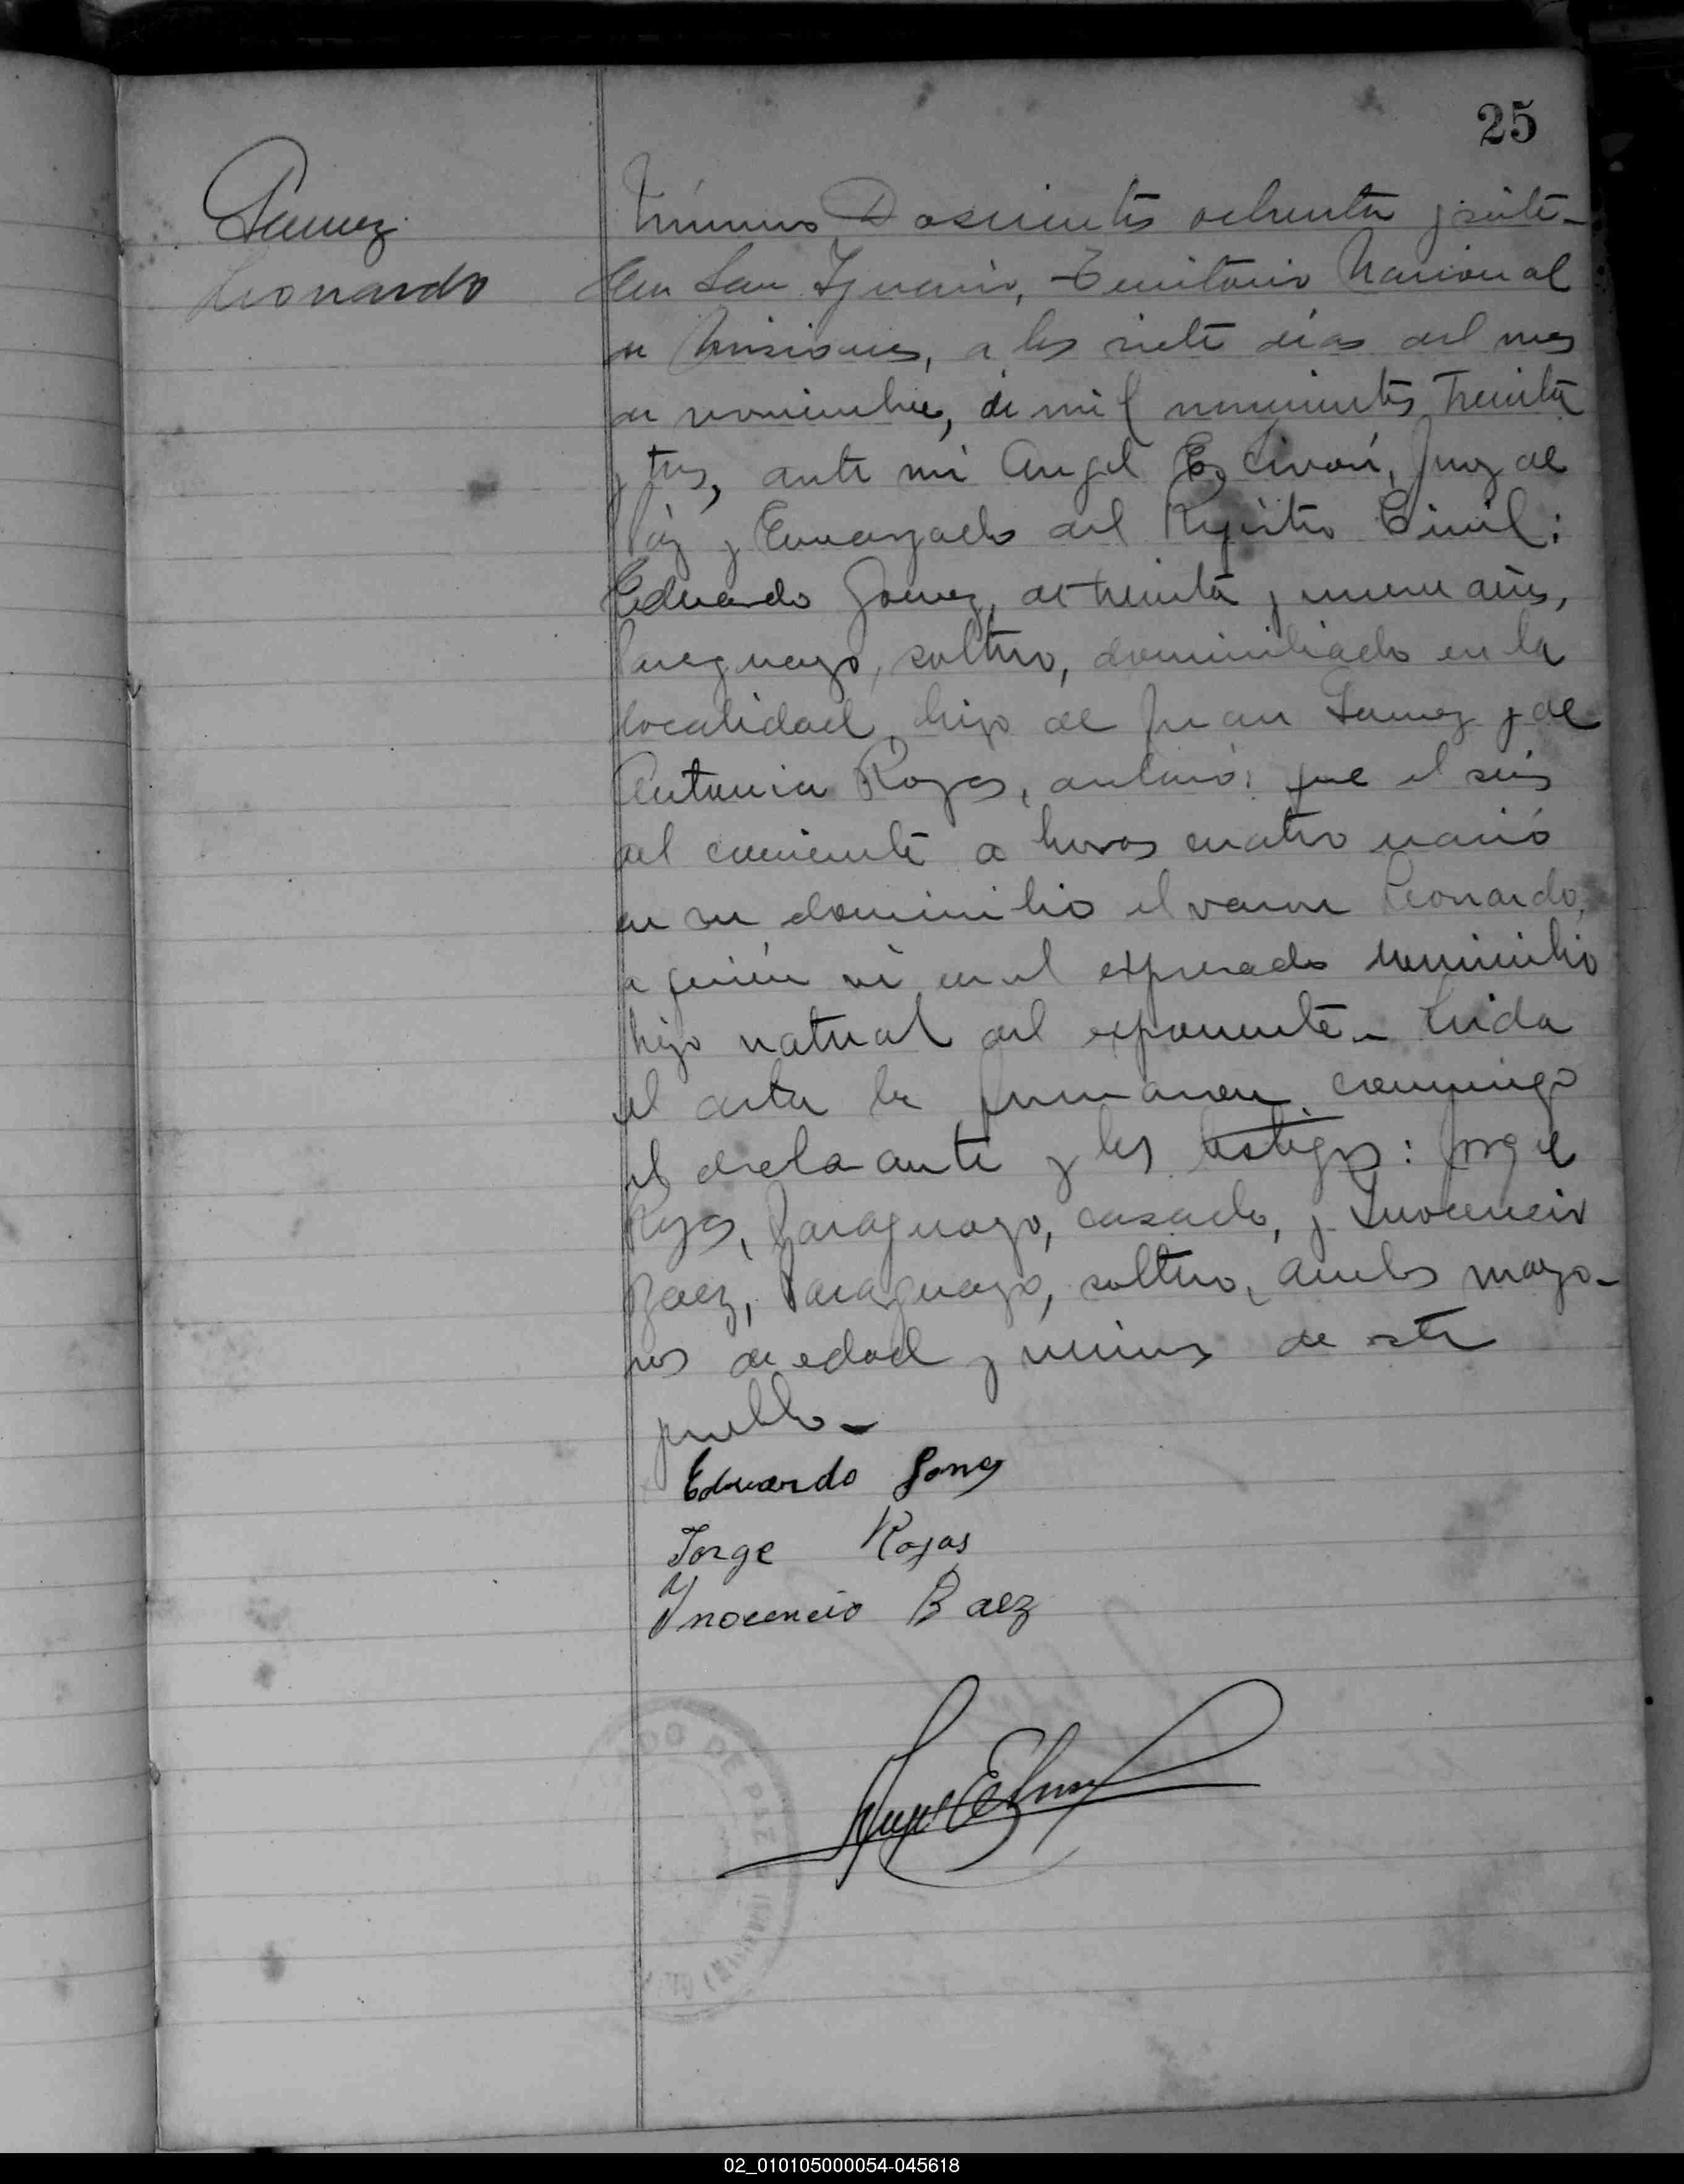 25
Gomez
Leonardo
Número Doscientos ochenta y siete-
En San Ignacio, Territorio Nacional
de Misiones, a los siete dias del mes
de noviembre, de mil novecientos treinta
y tres, ante mi Angel Escivari, Juez de
Páz y Encargado del Registro Civil:
Eduardo Gomez, de treinta y nueve años,
Paraguayo, soltero, domiciliado en la
localidad, hijo de Juan Gomez y de
Antonia Rojas, declaró: que el seis
del corriente a horas cuatro nació
en su domicilio el varon Leonardo,
a quien vi en el expresado domicilio
hijo natural del exponente- Leida
el acta la firmaron conmigo
el declarante y los testigos: Jorge
Rojas, Paraguayo, casado, y Inocencio
Baez, Paraguayo, soltero, ambos mayo-
res de edad y vecinos de este
pueblo-
Eduardo Gomez
Jorge Rojas
Ynocencio Baez
DO DE PAZ
02_010105000054-045618